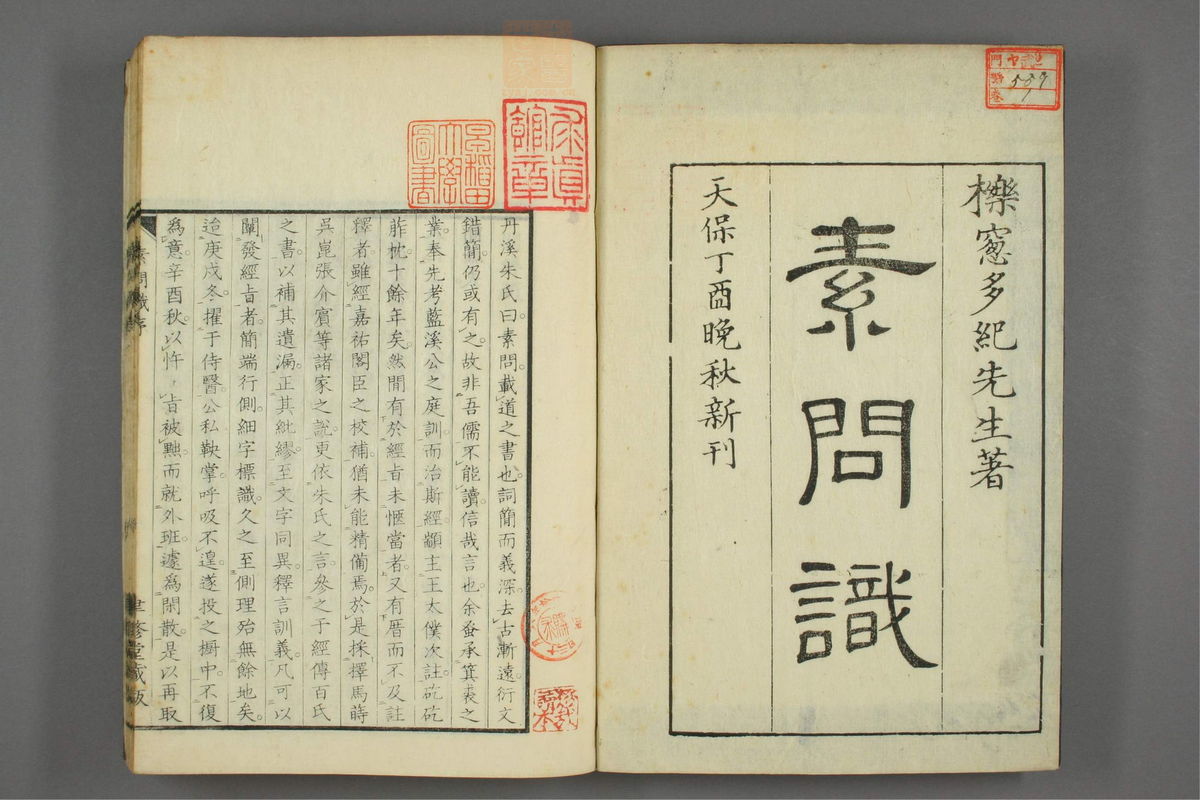 櫟窓多紀先生著
素問識
天保丁酉晩秋新刊
丹溪朱氏曰素問載道之書也詞簡而義深去古漸遠衍文
錯簡仍或有之故非吾儒不能讀信哉言也余蚤承箕裘之
業奉先考藍溪公之庭訓而治斯經顓主王太僕次註矻矻
葄枕十餘年矣然間有於經旨未愜當者又有厝而不及註
釋者雖經嘉祐閣臣之校補猶未能精備焉於是採擇馬蒔
吳崑張介賓等諸家之說更依朱氏之言參之于經傳百氏
之書以補其遺漏正其紕繆至文字同異釋言訓義凡可以
闡發經旨者簡端行側細字標識久之至側理殆無餘地矣
迨庚戌冬擢于侍醫公私鞅掌呼吸不遑遂投之櫥中不復
為意辛酉秋以忤旨被黜而就外班遽為閑散是以再取
素問識序
聿修堂藏版
早稻田大學圖書
館章